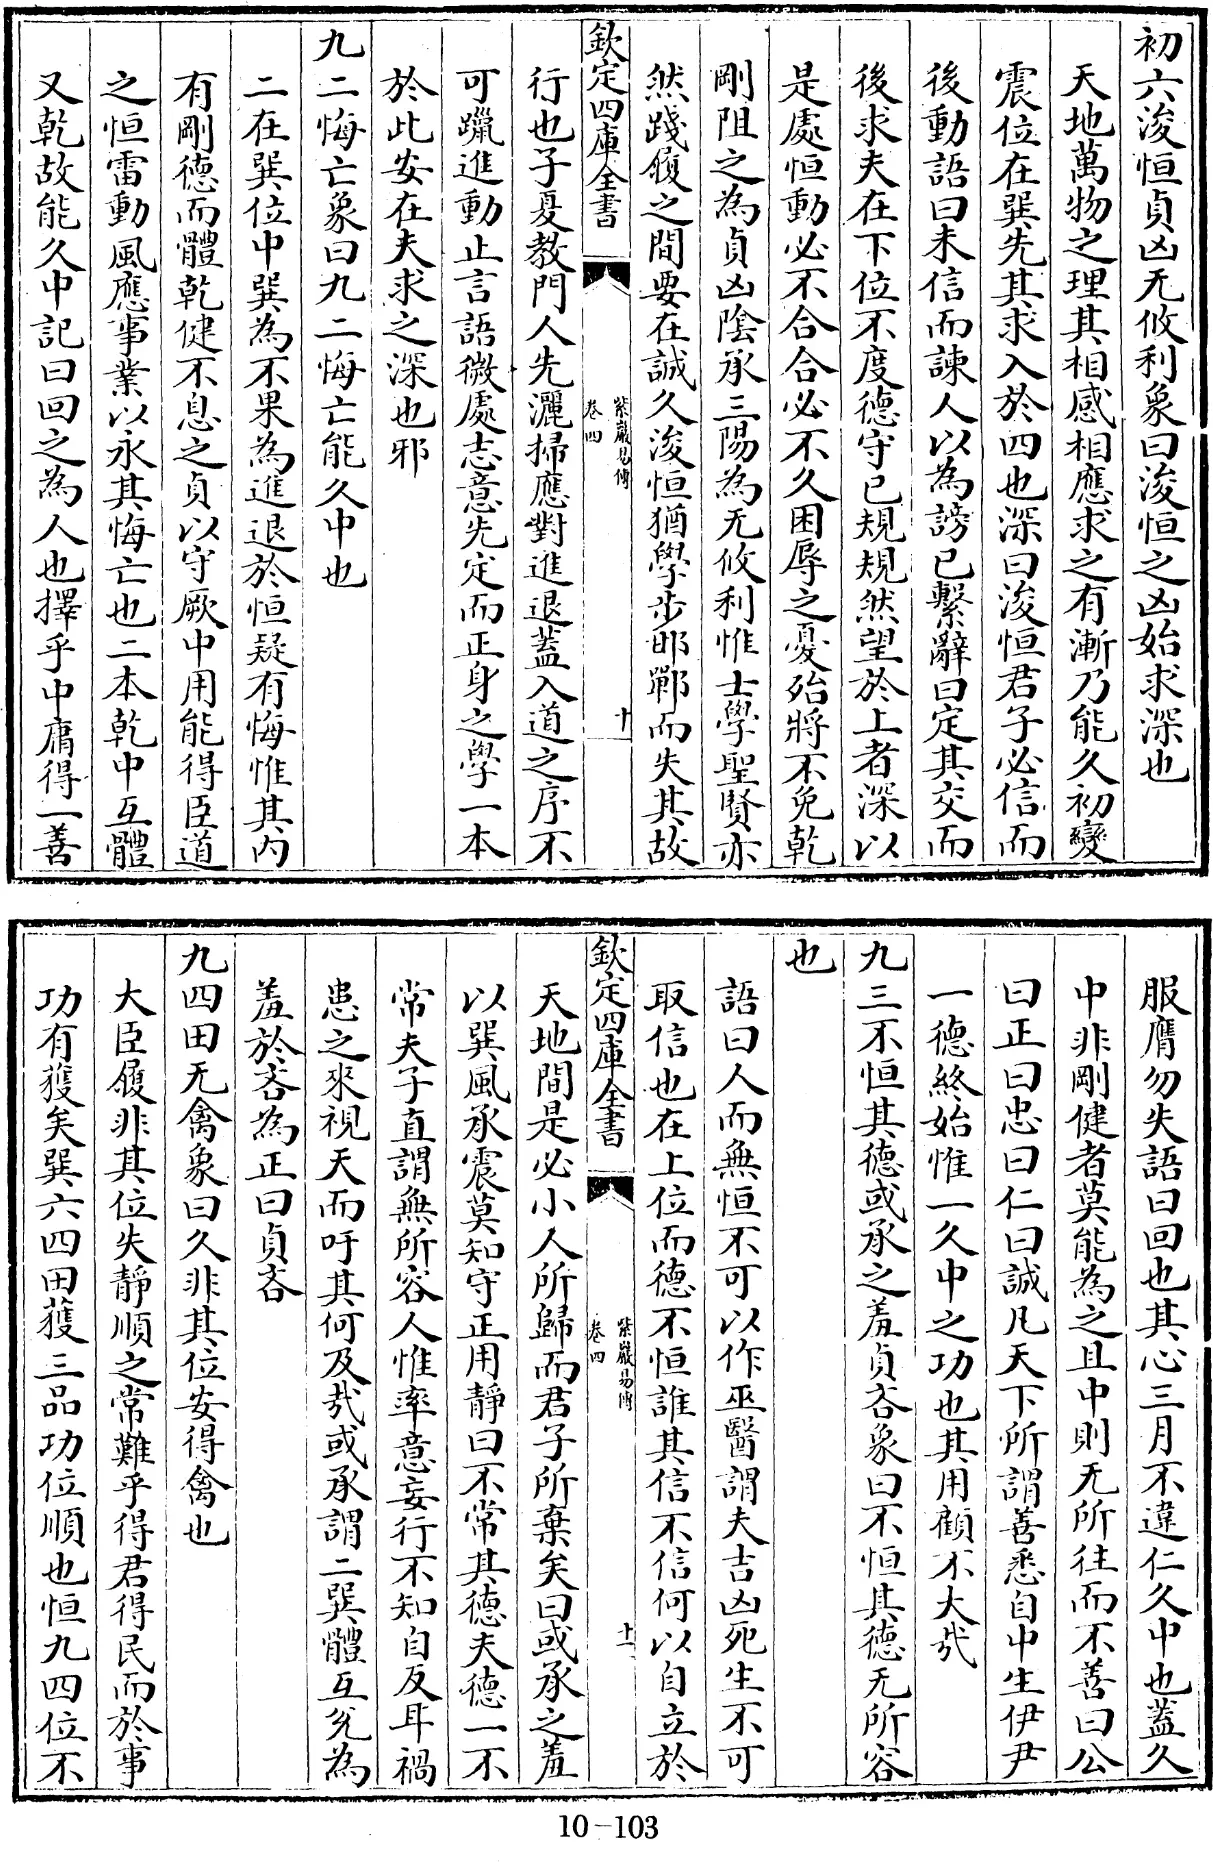 初六浚恒貞凶无攸利象曰浚恒之凶始求深也
天地萬物之理其相感相應求之有漸乃能久初變
震位在巽先其求入於四也深曰浚恒君子必信而
後動語曰未信而諫人以為謗已繫辭曰定其交而
後求夫在下位不度德守已規規然望於上者深以
是處恒動必不合合必不久困辱之憂殆將不免乾
剛阻之為貞凶陰承三陽為无攸利惟士學聖賢亦
然踐履之間要在誠久浚恒猶學步邯鄲而失其故
欽定四庫全書
紫巖易傳
卷四
十
行也子夏教門人先灑掃應對進退蓋入道之序不
可躐進動止言語微處志意先定而正身之學一本
於此安在夫求之深也邪
九二悔亡象曰九二悔亡能久中也
二在巽位中巽為不果為進退於恒疑有悔惟其内
有剛德而體乾健不息之貞以守厥中用能得臣道
之恒雷動風應事業以永其悔亡也二本乾中互體
又乾故能久中記曰回之為人也擇乎中庸得一善
服膺勿失語曰回也其心三月不違仁久中也蓋久
中非剛健者莫能為之且中則无所往而不善曰公
曰正曰忠曰仁曰誠凡天下所謂善悉自中生伊尹
一德終始惟一久中之功也其用顧不大哉
九三不恒其德或承之羞貞吝象曰不恒其德无所容
也
語曰人而無恒不可以作巫醫謂夫吉凶死生不可
取信也在上位而德不恒誰其信不信何以自立於
欽定四庫全書
紫巖易傳
卷四
十一
天地間是必小人所歸而君子所棄矣曰或承之羞
以巽風承震莫知守正用靜曰不常其德夫德一不
常夫子直謂無所容人惟率意妄行不知自反耳禍
患之來視天而吁其何及哉或承謂二巽體互兌為
羞於吝為正曰貞吝
九四田无禽象曰久非其位安得禽也
大臣履非其位失靜順之常難乎得君得民而於事
功有獲矣巽六四田獲三品功位順也恒九四位不
10-103